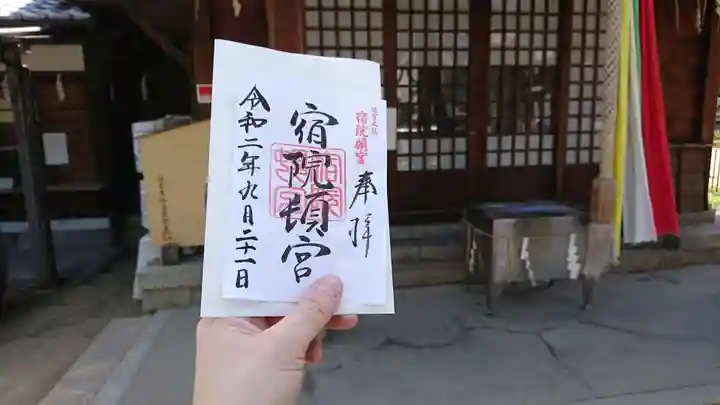 奉拝
宿院頓宮
宿院頓宮
令和二年九月二十一日